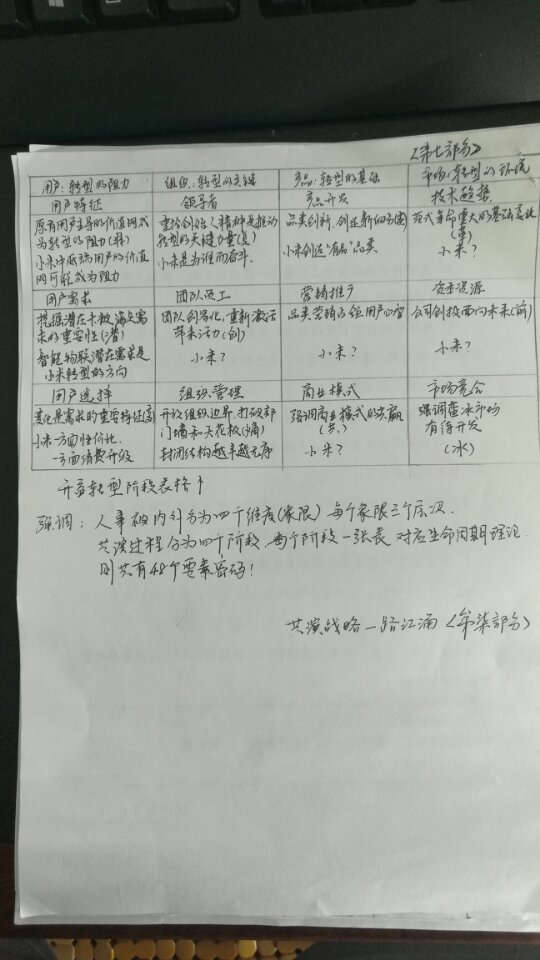 〈第七部分〉
用户:转型的阻力 组织:转型的关键 产品:转型的基础 市场:转型的环境
用户特征 领导者 产品开发 技术趋势
原有用户主导的价值网或为转型的阻力(释)
小米中低端用户的价值网可能成为阻力
重拾创始人精神是推动转型的关键力量(复)
小米是为谁而奋斗.
品类创新,创造新的
小米创造"有品"品类
范式革命重大的基础变化
小米?
用户需求 团队员工 营销推广 资金资源
挖掘潜在未被满足需求的重要性(潜)
智能物联潜在需求是小米转型的方向
团队创客化,重新激活带来活力(创)
小米?
品类营销占领用户心智
小米?
公司创投面向未来(前)
小米?
用户选择 组织管理 商业模式 市场竞合
变化是需求的重要特征
小米一方面性价比.
一方面消费升级
开放组织边界,打破部门墙和天花板(熵)
封闭结构越来越无序
强调商业模式的共赢(共)
小米?
强调蓝冰市场
有待开发
(冰)
转型阶段表格↑
强调: 人事破内外分为四个维度(象限) 每个象限三个层次.
共演过程分为四个阶段 每个阶段一张表 对应生命周期理论.
则共有48个要素密码!
共演战略—路江涌〈第柒部分〉